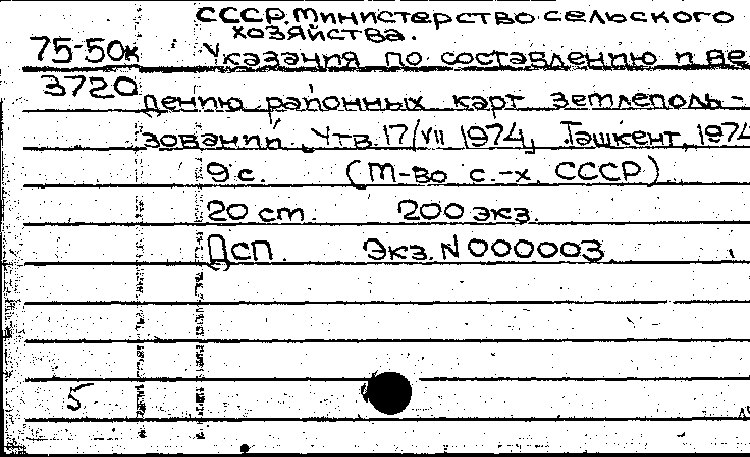 СССР. Министерство сельского
хозяйства.
75-50к Указания по составлению и ве
3720 дению районных карт землеполь-
зований. Утв. 17/VII 1974, Ташкент, 1974
9 с. (М-во с.-х. СССР)
20 ст. 200 экз.
Дсп. Экз. N 000003
5